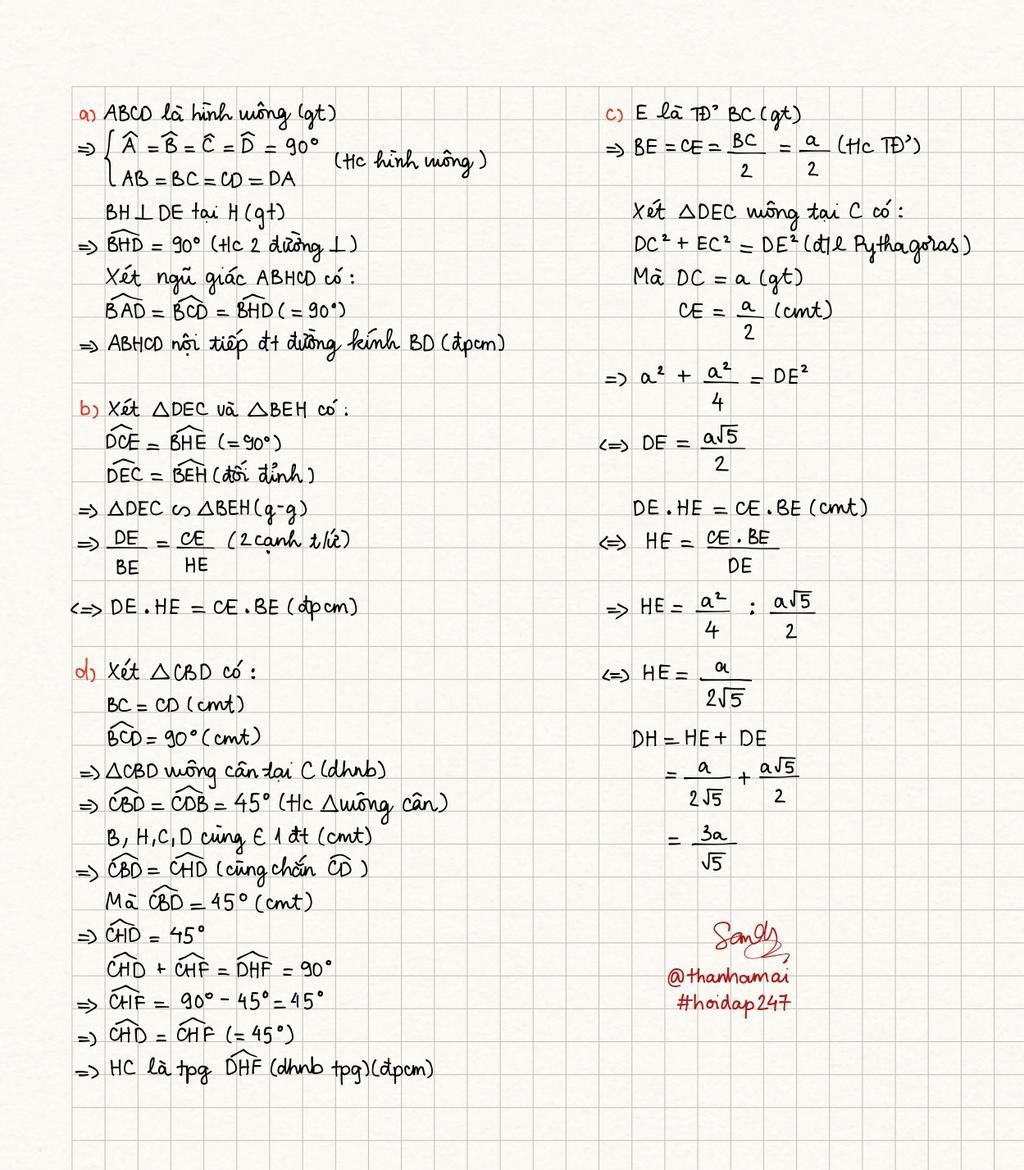 a) ABCD là hình vuông (gt)
=> { Â = B̂ = Ĉ = D̂ = 90°
AB = BC = CD = DA
(t/c hình vuông)
BH ⊥ DE tại H (gt)
=> BHD̂ = 90° (t/c 2 đường ⊥)
Xét ngũ giác ABHCD có:
BAD̂ = BCD̂ = BHD̂ (= 90°)
=> ABHCD nội tiếp đt đường kính BD (đpcm)
b) Xét △DEC và △BEH có:
DCÊ = BHÊ (= 90°)
DEĈ = BEĤ (đối đỉnh)
=> △DEC ∽ △BEH (g-g)
=> DE/BE = CE/HE (2 cạnh t/ứ)
<=> DE . HE = CE . BE (đpcm)
d) Xét △CBD có:
BC = CD (cmt)
BCD̂ = 90° (cmt)
=> △CBD vuông cân tại C (dhnb)
=> CBD̂ = CDB̂ = 45° (t/c △vuông cân)
B, H, C, D cùng ∈ 1 đt (cmt)
=> CBD̂ = CHD̂ (cùng chắn CD̂)
Mà CBD̂ = 45° (cmt)
=> CHD̂ = 45°
CHD̂ + CHF̂ = DHF̂ = 90°
=> CHF̂ = 90° - 45° = 45°
=> CHD̂ = CHF̂ (= 45°)
=> HC là tpg DHF̂ (dhnb tpg)(đpcm)
c) E là TĐ' BC (gt)
=> BE = CE = BC/2 = a/2 (t/c TĐ')
Xét △DEC vuông tại C có:
DC² + EC² = DE² (đ/l Pythagoras)
Mà DC = a (gt)
CE = a/2 (cmt)
=> a² + a²/4 = DE²
<=> DE = a√5/2
DE . HE = CE . BE (cmt)
<=> HE = CE . BE/DE
=> HE = a²/4 : a√5/2
<=> HE = a/2√5
DH = HE + DE
= a/2√5 + a√5/2
= 3a/√5
Sandy
@thanhamai
#hoidap247